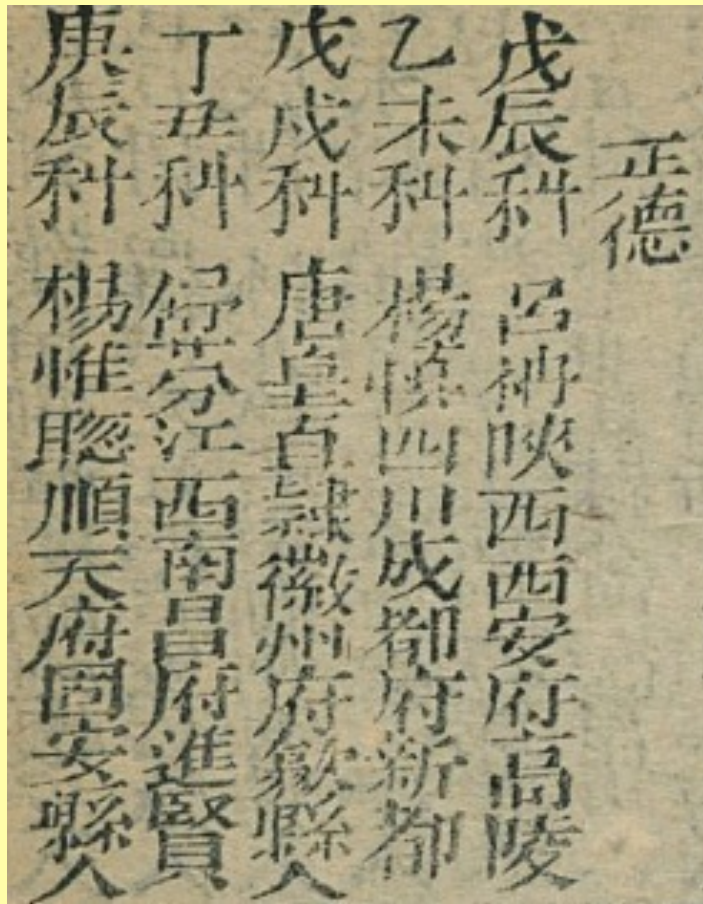 正德
戊辰科 呂柟陝西西安府高陵
乙未科 楊慎四川成都府新都
戊戌科 唐皐直隸徽州府歙縣人
丁丑科 舒芬江西南昌府進賢
庚辰科 楊惟聦順天府固安縣人